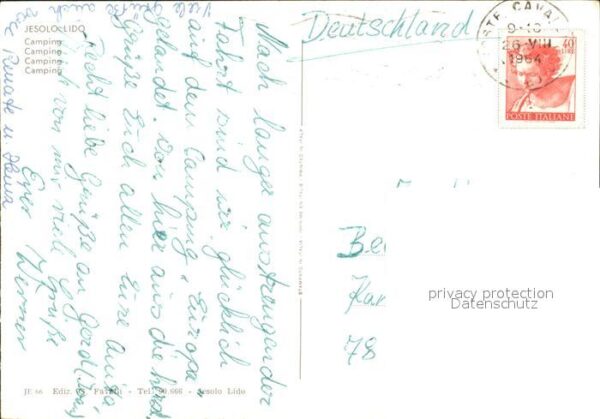 JESOLO LIDO
Camping
Camping
Camping
Camping
Deutschland
POSTE CAVAL
9-10
26 VIII
1964
40
LIRE
POSTE ITALIANE
Nach langer anstrengender
Fahrt sind wir glücklich
auf dem Camping "Europa"
gelandet. Von hier aus die herzl.
Grüße Euch allen Eure Anita
Recht liebe Grüße an Gerdl
Auch von mir viele Grüße
Euer Werner
Viele
Grüße auch
Renate u.
Be
Kar
78
privacy protection
Datenschutz
JE 66 Ediz. Tel. 90.666 - Jesolo Lido